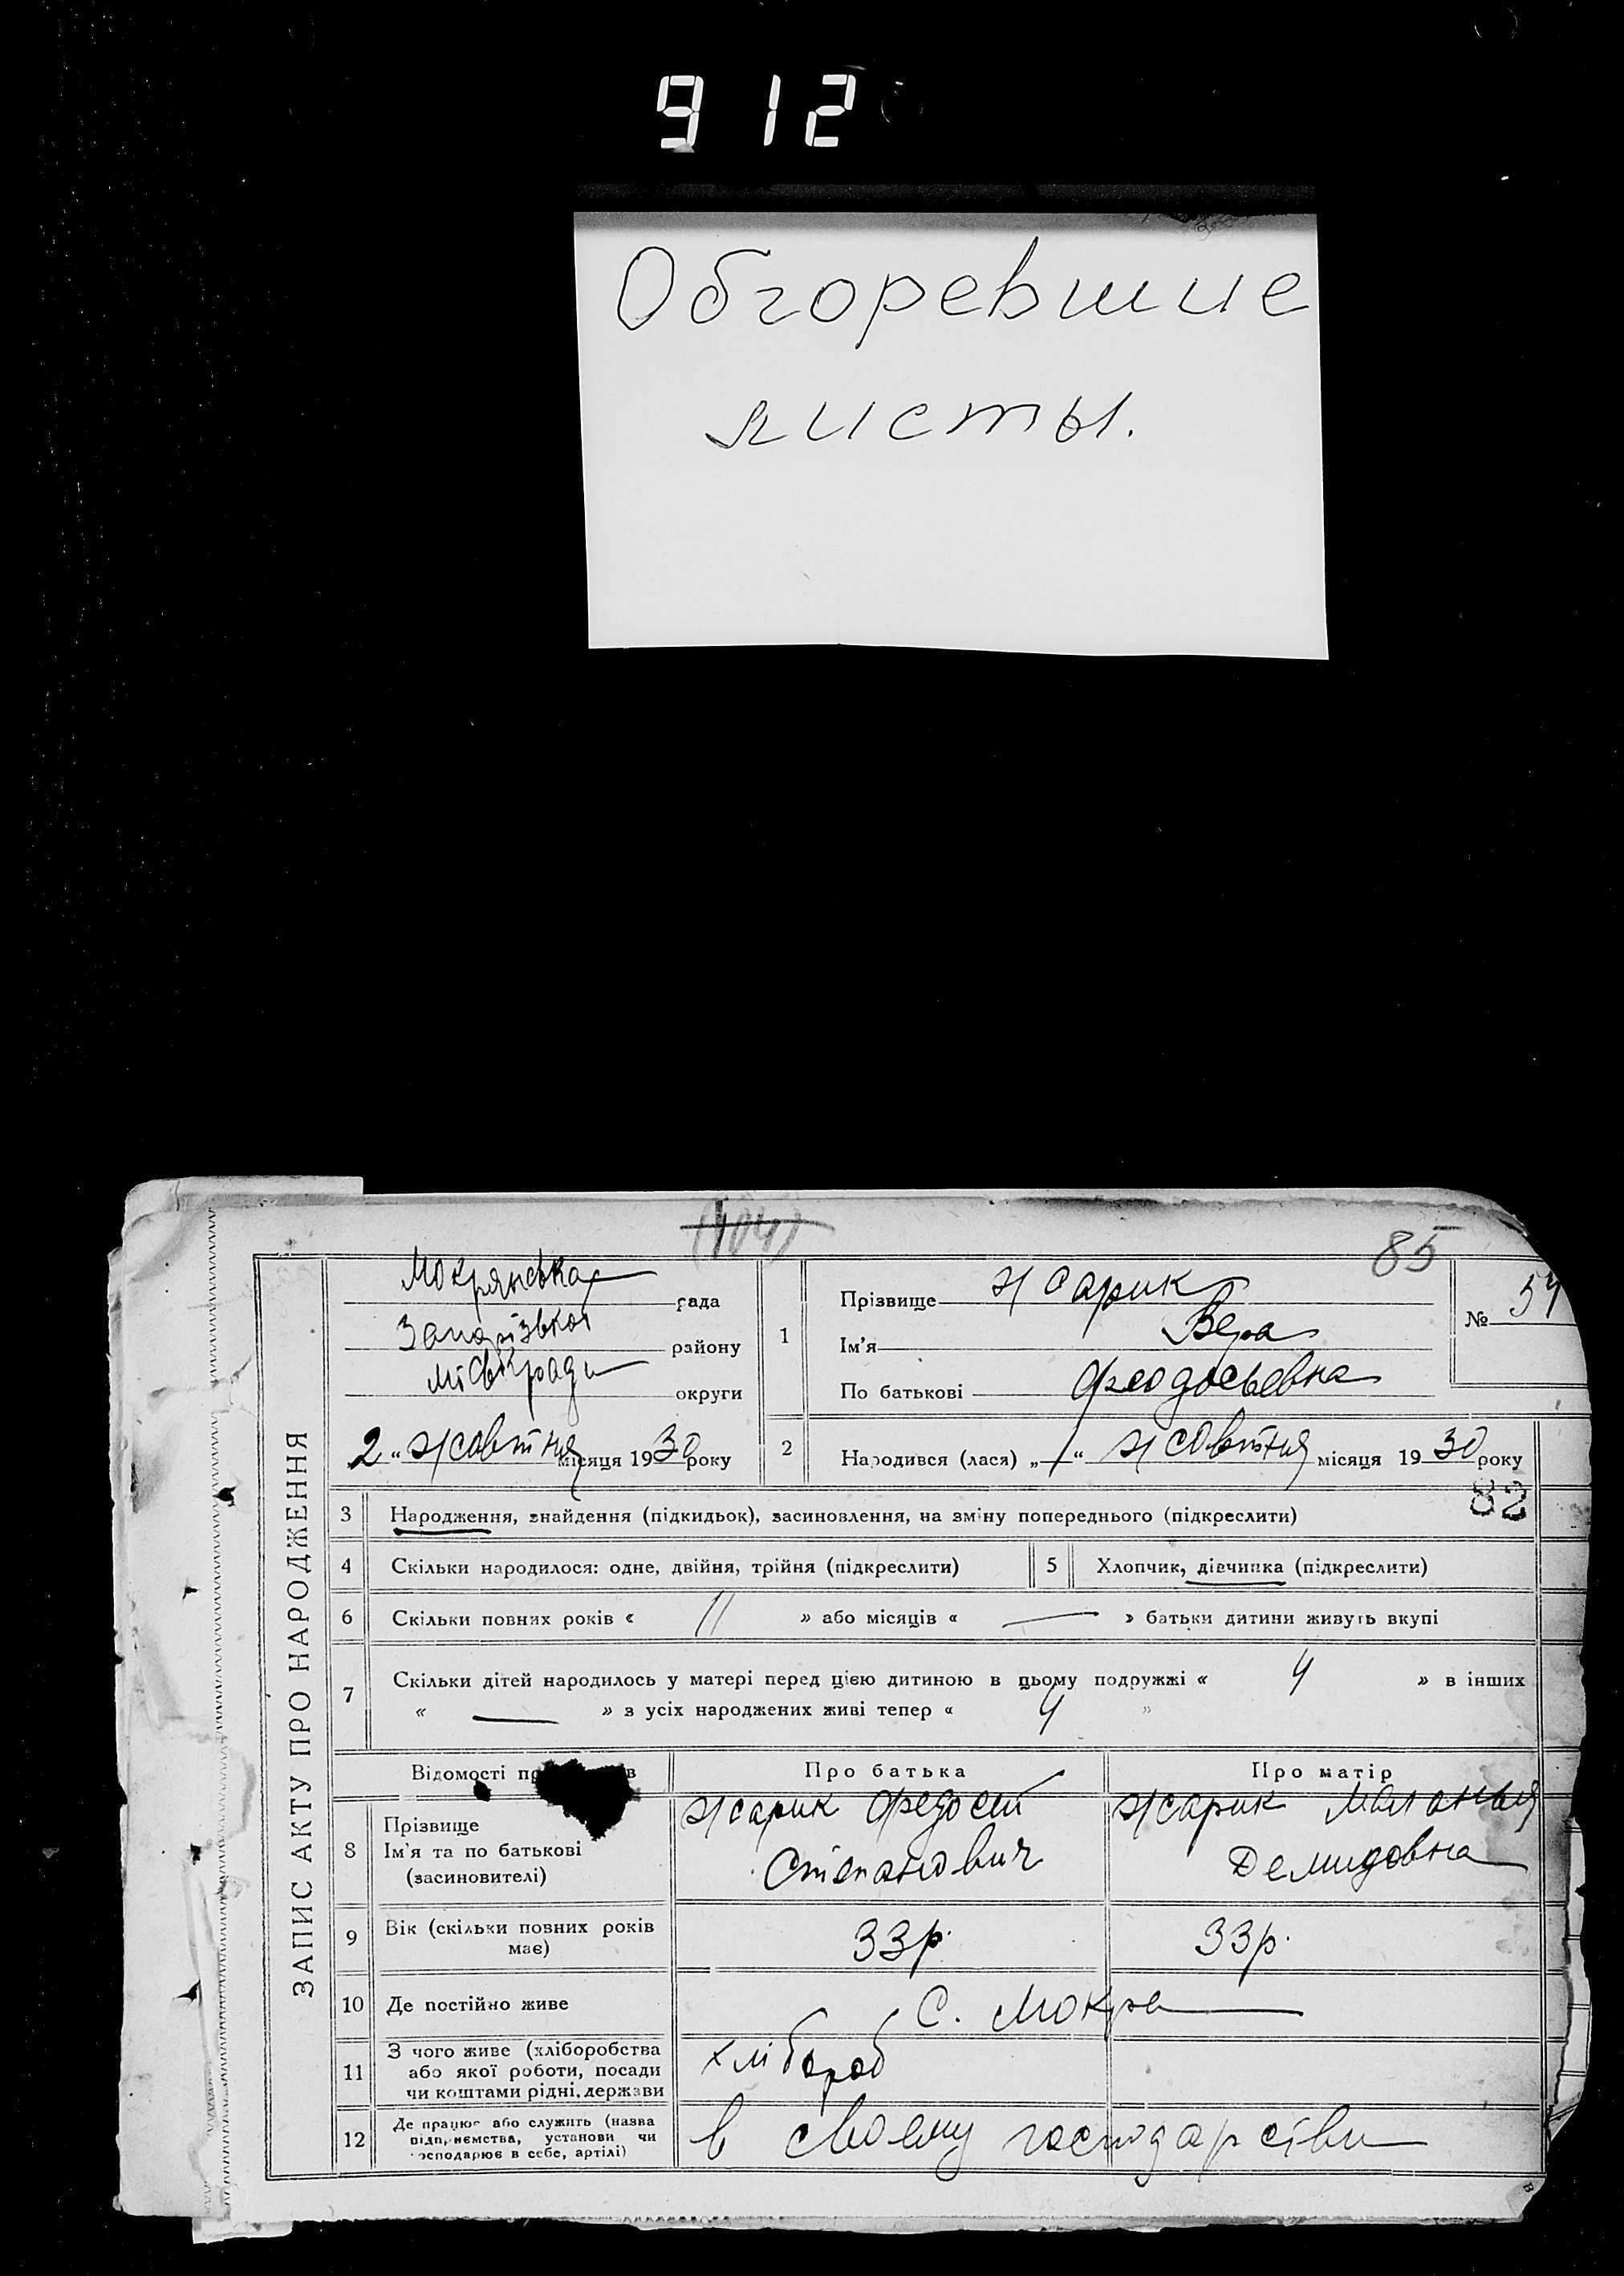 912
Обгоревшие
листы.
(104)
85
ЗАПИС АКТУ ПРО НАРОДЖЕННЯ
Мокрянська рада
Запорізької району
Міськради округи
2 " жовтня місяця 1930 року
1
Прізвище Жарик
Ім'я Вера
По батькові Феодосьевна
№ 54
2
Народився (лася) „1“ жовтня місяця 1930 року
82
3 Народження, знайдення (підкидьок), засиновлення, на зміну попереднього (підкреслити)
4 Скільки народилося: одне, двійня, трійня (підкреслити)
5 Хлопчик, дівчинка (підкреслити)
6 Скільки повних років « 11 » або місяців « — » батьки дитини живуть вкупі
7 Скільки дітей народилось у матері перед цією дитиною в цьому подружжі « 4 » в інших
« — » з усіх народжених живі тепер « 4 »
Відомості пр в
Про батька
Про матір
8
Прізвище
Ім'я та по батькові
(засиновителі)
Жарик Федосей
Степанович
Жарик Маланья
Демидовна
9
Вік (скільки повних років
має)
33 р.
33 р.
10 Де постійно живе
С. Мокра
11
З чого живе (хліборобства
або якої роботи, посади
чи коштами рідні, держави
хлібороб
12
Де працює або служить (назва
підприємства, установи чи
господарює в себе, артілі)
в своєму господарстви